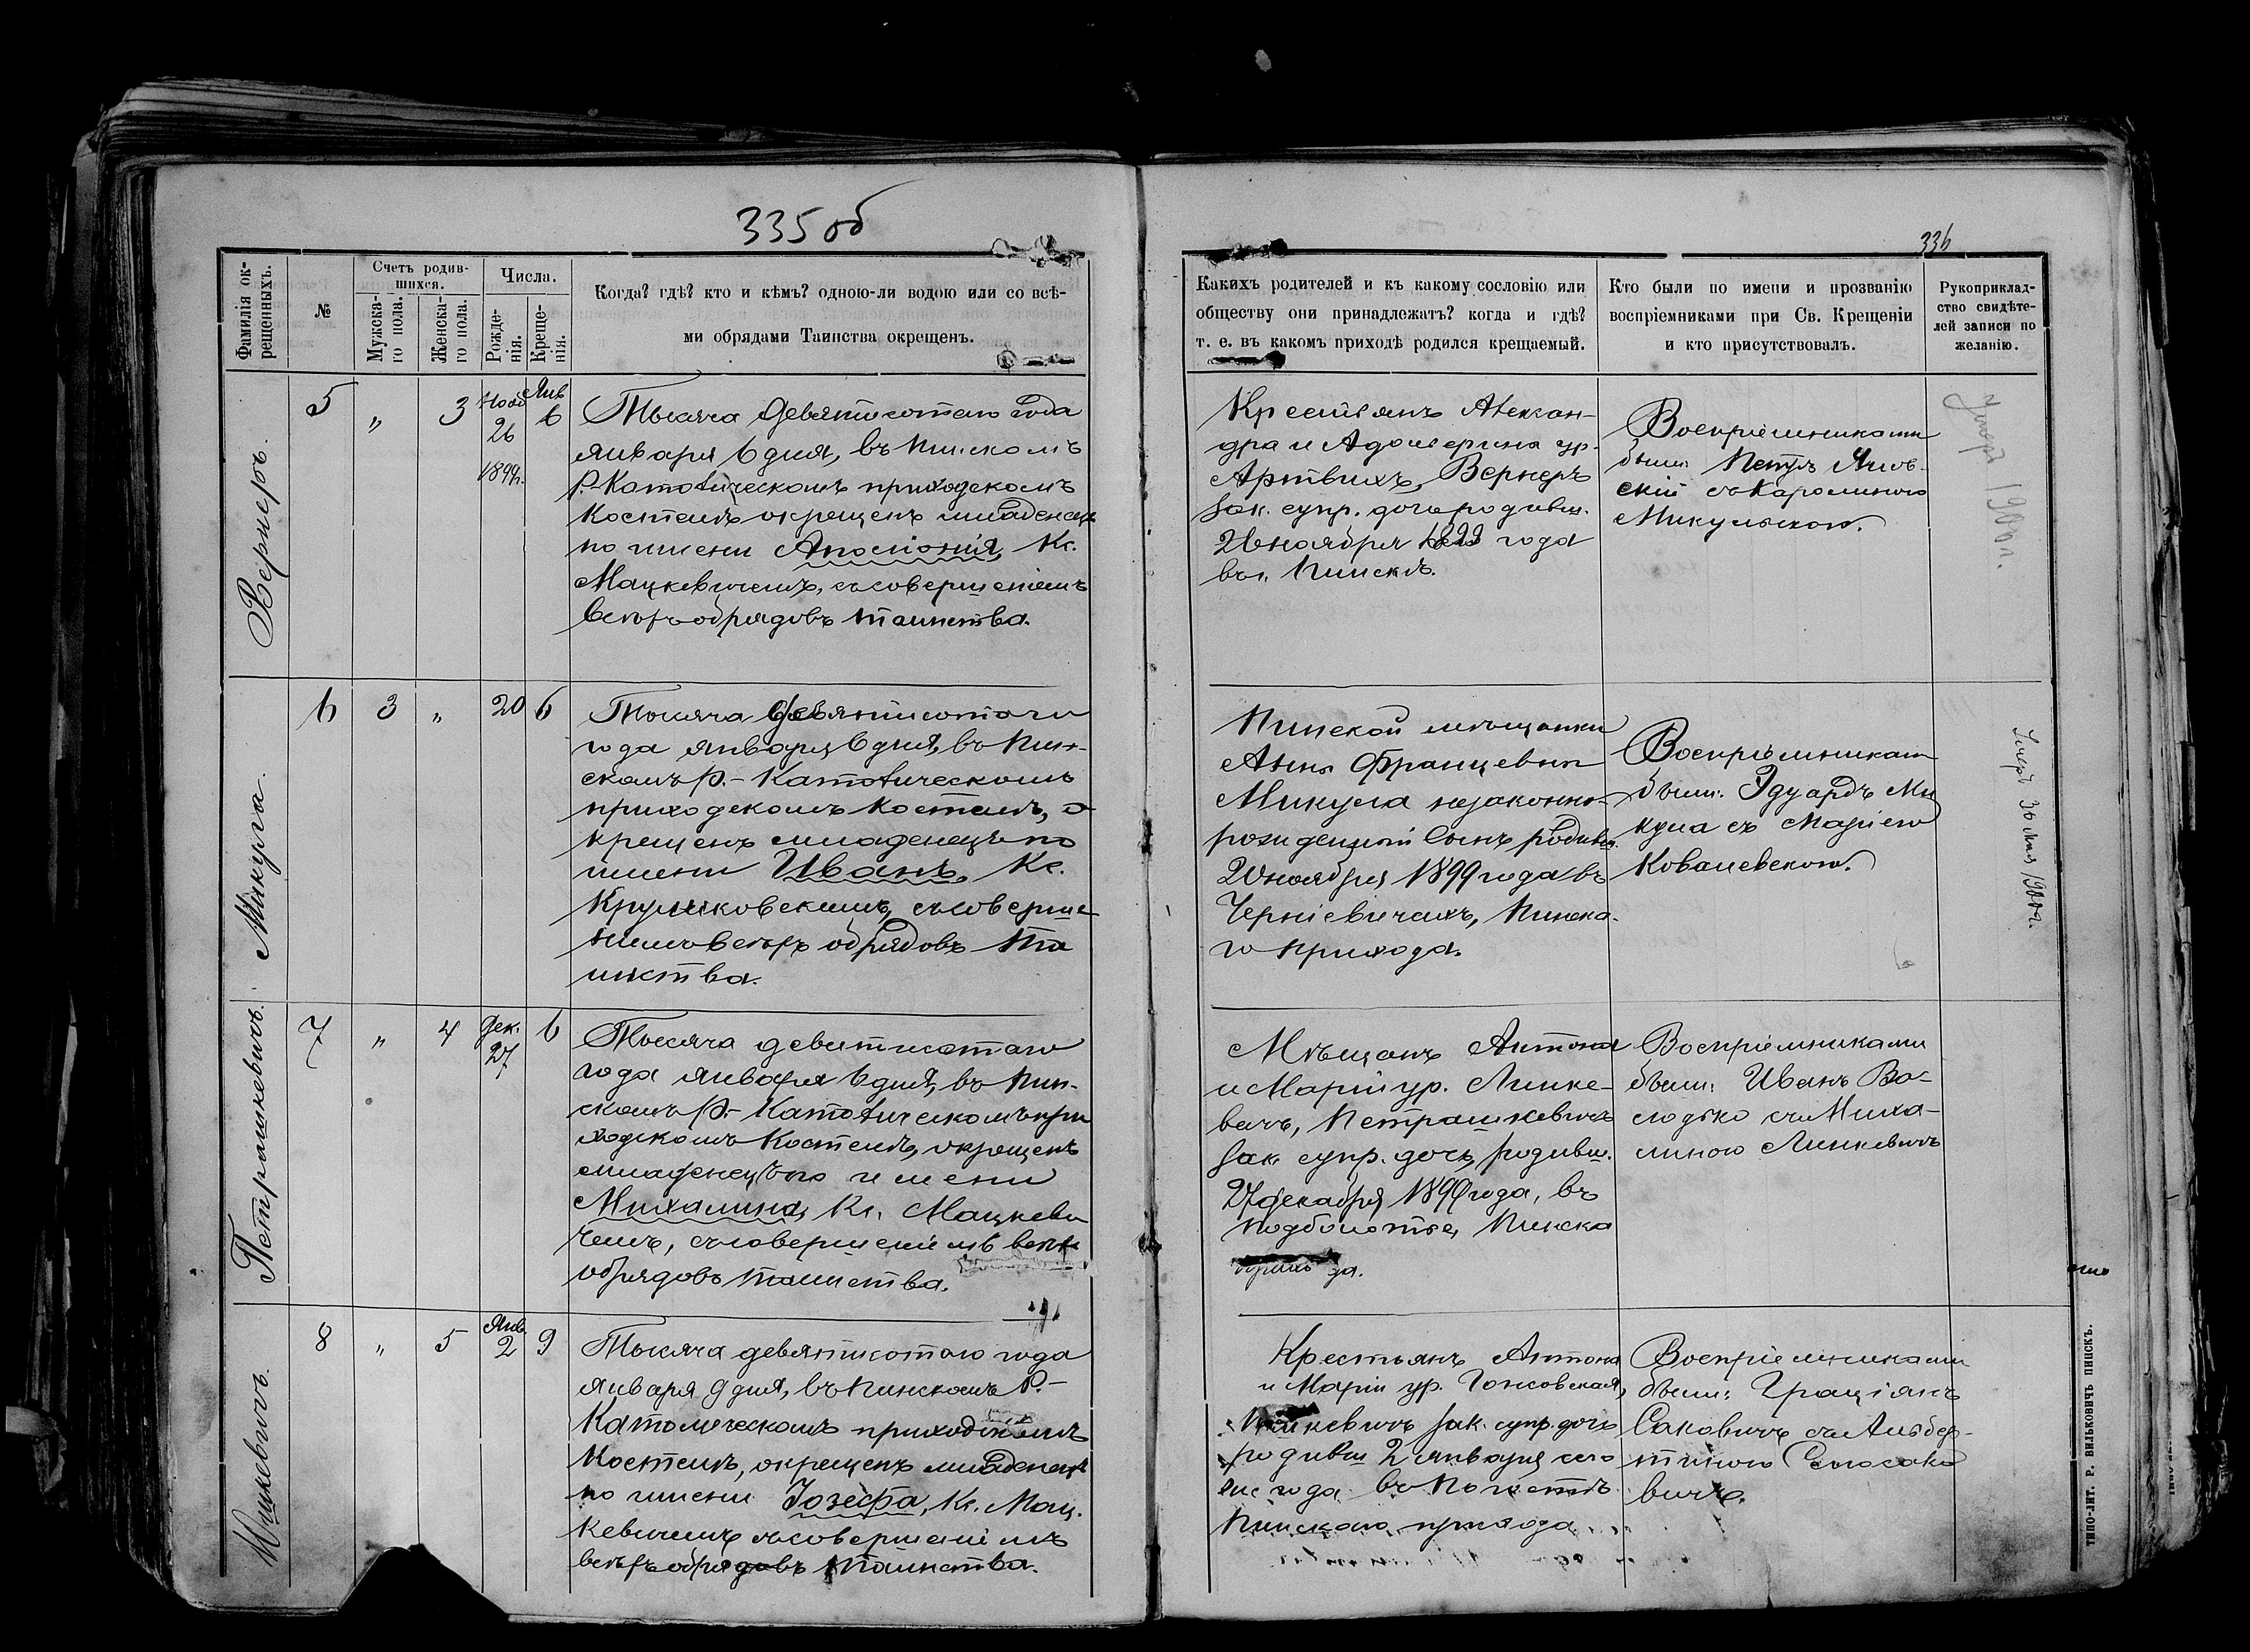 335 об
336
Фамилія ок-
рещенныхъ.
№
Счетъ родив-
шихся.
Мужска-
го пола.
Женска-
го пола.
Числа.
Рожде-
нія.
Креще-
нія.
Когда? гдѣ? кто и кѣмъ? одною-ли водою или со всѣ-
ми обрядами Таинства окрещенъ.
Какихъ родителей и къ какому сословію или
обществу они принадлежатъ? когда и гдѣ?
т. е. въ какомъ приходѣ родился крещаемый.
Кто были по имени и прозванію
воспріемниками при Св. Крещеніи
и кто присутствовалъ.
Рукоприклад-
ство свидѣте-
лей записи по
желанію.
Вернеръ.
5
"
3
Нояб
26
1899г.
Янв
6
Тысяча девятисотаго года
января 6 дня, въ Пинскомъ
Р.-Католическомъ приходскомъ
Костелѣ окрещенъ младенецъ
по имени Аполонія, Кс.
Мацкевичемъ, съ совершеніемъ
всѣхъ обрядовъ таинства.
Крестьянъ Алексан-
дра и ур.
Вернеръ
зак. супр. дочь родивш.
26 ноября 1899 года
въ г. Пинскѣ.
Воспріемниками
были: Петръ
скій съ Каролиною
Микульскою.
1900 г.
Микула.
6
3
"
20
6
Тысяча девятисотаго
года января 6 дня, въ Пин-
скомъ Р.-Католическомъ
приходскомъ Костелѣ, о-
крещенъ младенецъ по
имени Иванъ, Кс.
Круликовскимъ, съ соверше
ніемъ всѣхъ обрядовъ та
инства.
Пинской мѣщанки
Анны Францевны
Микула незаконно-
рожденный сынъ родивш.
20 ноября 1899 года въ
Черніевичахъ, Пинска-
го прихода.
Воспріемникам
были: Эдуардъ Ми
кула съ Маріею
Ковалевскою.
30 мая 1900 г.
Петрашкевичъ.
7
"
4
Дек.
27
6
Тысяча девятисотаго
года января 6 дня, въ Пин-
скомъ Р.-Католическомъ при
ходскомъ Костелѣ, окрещенъ
младенецъ по имени
Михалина, Кс. Мацкеви
чемъ, съ совершеніемъ всѣхъ
обрядовъ таинства.
Мѣщанъ Антона
и Маріи ур. Линке-
вичъ, Петрашкевичъ
зак. супр. дочь, родивш.
27 декабря 1899 года, въ
Подболотье, Пинска
Воспріемниками
были: Иванъ Во-
лодько съ Миха-
линою Линкевичъ
8
"
5
Янв.
2
9
Тысяча девятисотаго года
января 9 дня, въ Пинскомъ Р.-
Католическомъ приходскомъ
Костелѣ, окрещенъ младенецъ
по имени Іозефа, Кс. Мац-
кевичемъ съ совершеніемъ
всѣхъ обрядовъ таинства.
Крестьянъ Антона
и Маріи ур.
зак. супр. дочь
родивш 2 января сего
же года въ
Пинскаго прихода
Воспріемниками
были: Граціянъ
Саковичъ съ Альбер-
тиною
вичъ.
ТИПО-ЛИТ. Р. ВИЛЬКОВИЧЪ ПИНСКЪ.